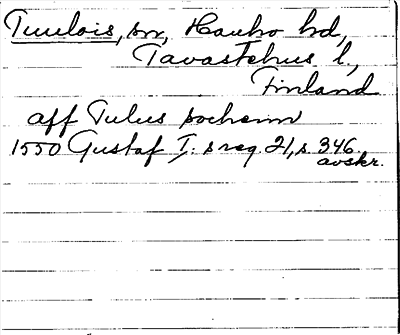 Tuulois, sn, Hauho hd,
Tavastehus l,
Finland
aff Tulus sochenn
1550 Gustaf I: s reg. 21, s. 346.
avskr.